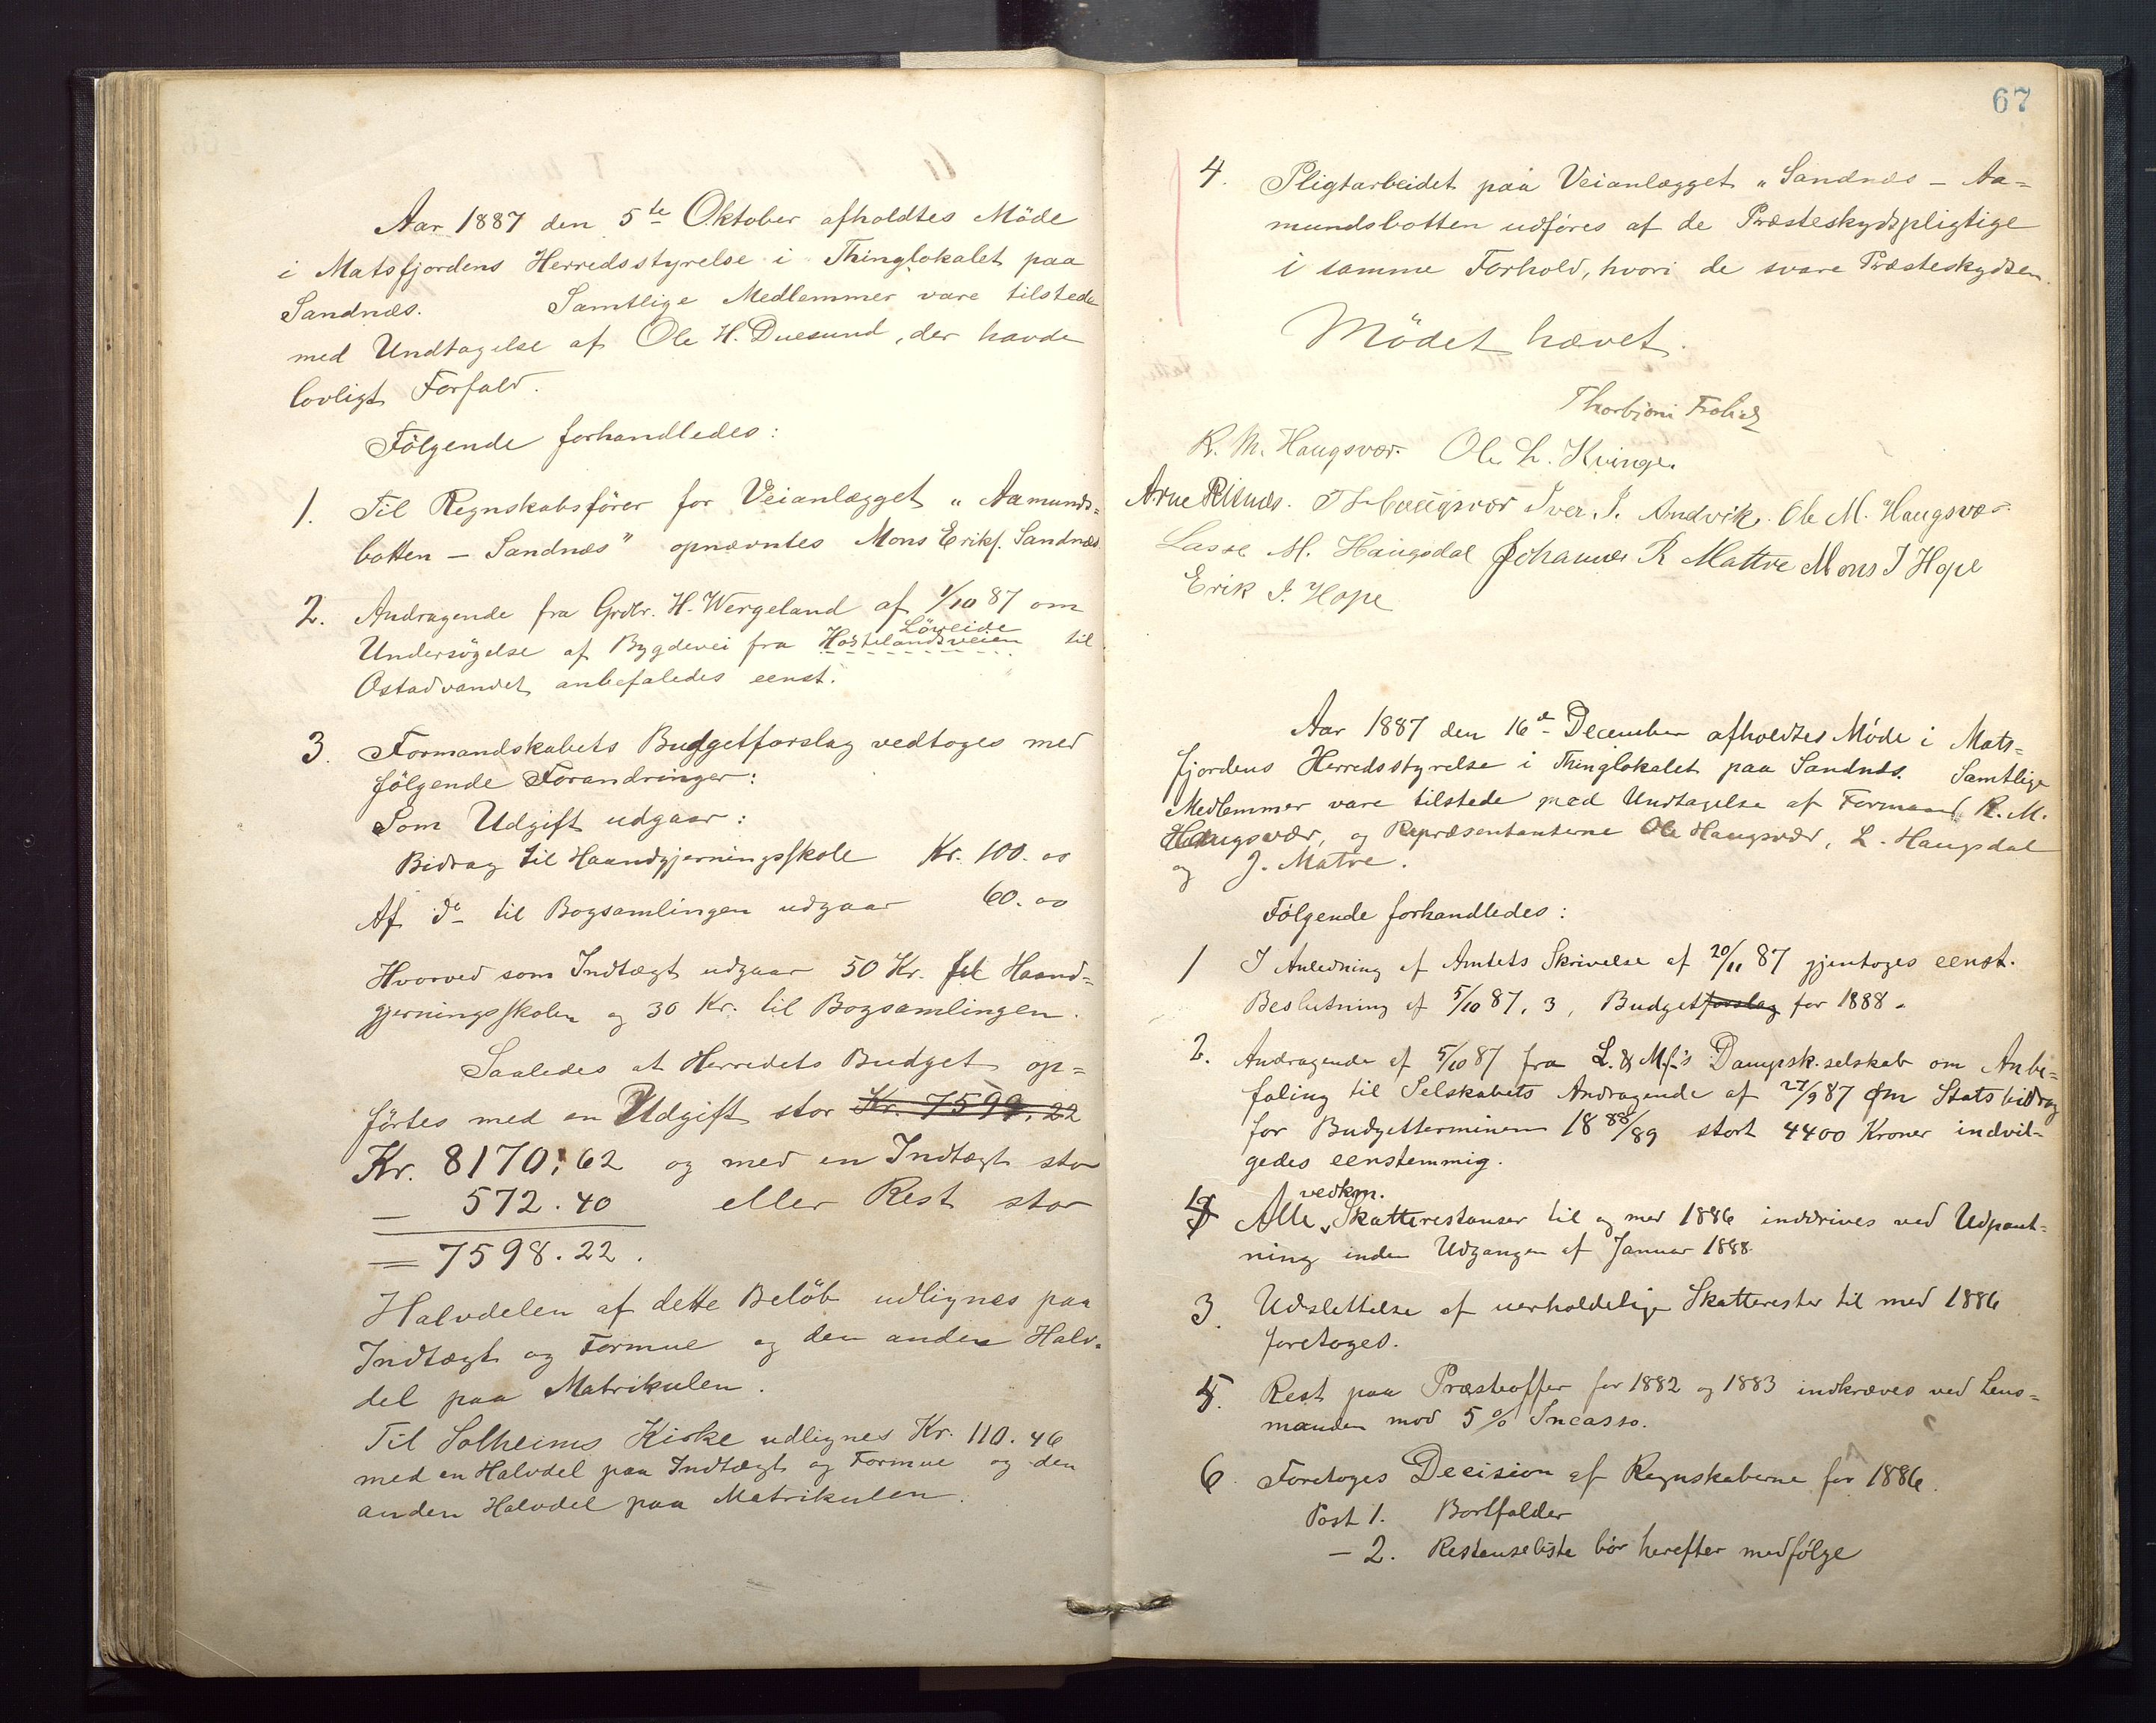 Aar 1887 den 5te Oktober afholdtes Möde
i Matsfjordens Herredsstyrelse i Thinglokalet paa
Sandnæs. Samtlige Medlemmer vare tilstede
med Undtagelse af Ole H. Duesund, der havde
lovligt Forfald.
Fölgende forhandledes:
1. Til Regnskabsförer for Veianlægget „Aamunds=
botten – Sandnæs" opnævntes Mons Eriks. Sandnæs
2. Andragende fra Grdbr. H. Wergeland af 1/10 87 om
Löveide
Undersögelse af Bygdevei fra Hostelandsveien til
Ostadvandet anbefaledes eenst.
3. Formandskabets Budgetforslag vedtoges med
fölgende Forandringer:
Som Udgift udgaar:
Bidrag til Haandgjerningsskole Kr. 100.00
Af do til Bogsamlingen udgaar 60.00
Hvorved som Indtægt udgaar 50 Kr. til Haand=
gjerningsskolen og 30 Kr. til Bogsamlingen.
Saaledes at Herredets Budget op=
förtes med en Udgift stor Kr. 7599.22
Kr. 8170.62 og med en Indtægt stor
– 572.40 eller Rest stor
= 7598.22.
Halvdelen af dette Belöb udlignes paa
Indtægt og Formue og den anden Halv=
del paa Matrikulen.
Til Solheims Kirke udlignes Kr. 110.46
med en Halvdel paa Indtægt og Formue og den
anden Halvdel paa Matrikulen.
67
4. Pligtarbeidet paa Veianlægget „Sandnæs – Aa=
mundsbotten udföres af de Præsteskydspligtige
i samme Forhold, hvori de svare Præsteskydsen.
Mödet hævet.
R. M. Haugsvær. Ole L. Kvinge.
Arne Haugsvær Iver I. Andvik. Ole M. Haugsvær
Lasse M. Haugsdal Johannes R Mattre Mons I Hope
Erik I. Hope
Aar 1887 den 16de December afholdtes Möde i Mats=
fjordens Herredsstyrelse i Thinglokalet paa Sandnæs. Samtlige
Medlemmer vare tilstede med Undtagelse af Formand R. M.
Haugsvær, og Repræsentanterne Ole Haugsvær, L. Haugsdal
og J. Matre.
Fölgende forhandledes:
1 I Anledning af Amtets Skrivelse af 20/11 87 gjentoges eenst.
Beslutning af 5/10 87, 3, Budgetforslag for 1888.
2. Andragende af 5/10 87 fra L. & M.f.'s Dampsk.selskab om Anbe=
faling til Selskabets Andragende af 27/9 87 om Statsbidrag
for Budgetterminen 1888/89 stort 4400 Kroner indvil=
gedes eenstemmig.
vedkm.
4 Alle Skatterestanser til og med 1886 inddrives ved Udpant=
ning inden Udgangen af Januar 1888.
3. Udslettelse af uerholdelige Skatterester til med 1886
foretoges.
5. Rest paa Præsteoffer for 1882 og 1883 indkræves ved Lens=
manden mod 5 % Incasso.
6. Foretoges Decision af Regnskaberne for 1886.
Post 1. Bortfalder
– 2. Restanseliste bör herefter medfölge